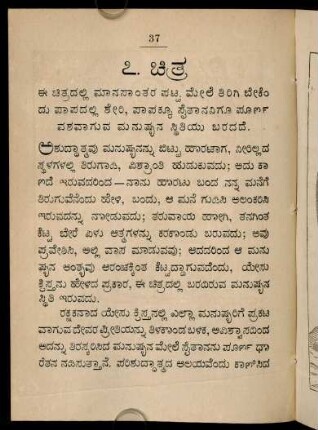 37
೭. ಚಿತ್ರ
ಈ ಚಿತ್ರದಲ್ಲಿ ಮಾನಸಾಂತರ ಪಟ್ಟ ಮೇಲೆ ತಿರಿಗಿ ಬೇಕೆಂ
ದು ಪಾಪದಲ್ಲಿ ಶೇರಿ, ಪಾಪಕ್ಕೂ ಸೈತಾನನಿಗೂ ಪೂರ್ಣ
ವಶವಾಗುವ ಮನುಷ್ಯನ ಸ್ಥಿತಿಯು ಬರದದೆ.
ಅಶುದ್ಧಾತ್ಮವು ಮನುಷ್ಯನನ್ನು ಬಿಟ್ಟು ಹಾರಟಾಗ, ನೀರಿಲ್ಲದ
ಸ್ಥಳಗಳಲ್ಲಿ ತಿರುಗಾಡಿ, ವಿಶ್ರಾಂತಿ ಹುಡುಕುವದು; ಅದು ಕಾ
ಣದೆ ಇರುವದರಿಂದ—ನಾನು ಹಾರಟು ಬಂದ ನನ್ನ ಮನೆಗೆ
ತಿರುಗುವೆನೆಂದು ಹೇಳಿ, ಬಂದು, ಆ ಮನೆ ಗುಡಿಸಿ ಅಲಂಕರಿಸಿ
ಇರುವದನ್ನು ನಾೇಡುವದು; ತರುವಾಯ ಹಾೇಗಿ, ತನಗಿಂತ
ಕೆಟ್ಟ ಬೇರೆ ಏಳು ಆತ್ಮಗಳನ್ನು ಕರಕಾಂಡು ಬರುವದು; ಅವು
ಪ್ರವೇಶಿಸಿ, ಅಲ್ಲಿ ವಾಸ ಮಾಡುವವು; ಆದದರಿಂದ ಆ ಮನು
ಷ್ಯನ ಅಂತ್ಯವು ಆರಂಭಕ್ಕಿಂತ ಕೆಟ್ಟದ್ದಾಗುವದೆಂದು, ಯೇಸು
ಕ್ರಿಸ್ತನು ಹೇಳಿದ ಪ್ರಕಾರ, ಈ ಚಿತ್ರದಲ್ಲಿ ಬರದಿರುವ ಮನುಷ್ಯನ
ಸ್ಥಿತಿ ಇರುವದು.
ರಕ್ಷಕನಾದ ಯೇಸು ಕ್ರಿಸ್ತನಲ್ಲಿ ಎಲ್ಲಾ ಮನುಷ್ಯರಿಗೆ ಪ್ರಕಟ
ವಾಗುವ ದೇವರ ಪ್ರೀತಿಯನ್ನು ತಿಳಕಾಂಡ ಬಳಿಕ, ಅವಿಶ್ವಾಸದಿಂದ
ಅದನ್ನು ತಿರಸ್ಕರಿಸಿದ ಮನುಷ್ಯನ ಮೇಲೆ ಸೈತಾನನು ಪೂರ್ಣ ಧಾ
ರೆತನ ನಡಿಸುತ್ತಾನೆ. ಪರಿಶುದ್ಧಾತ್ಮದ ಆಲಯವೆಂದು ಕಾಣಿಸಿದ